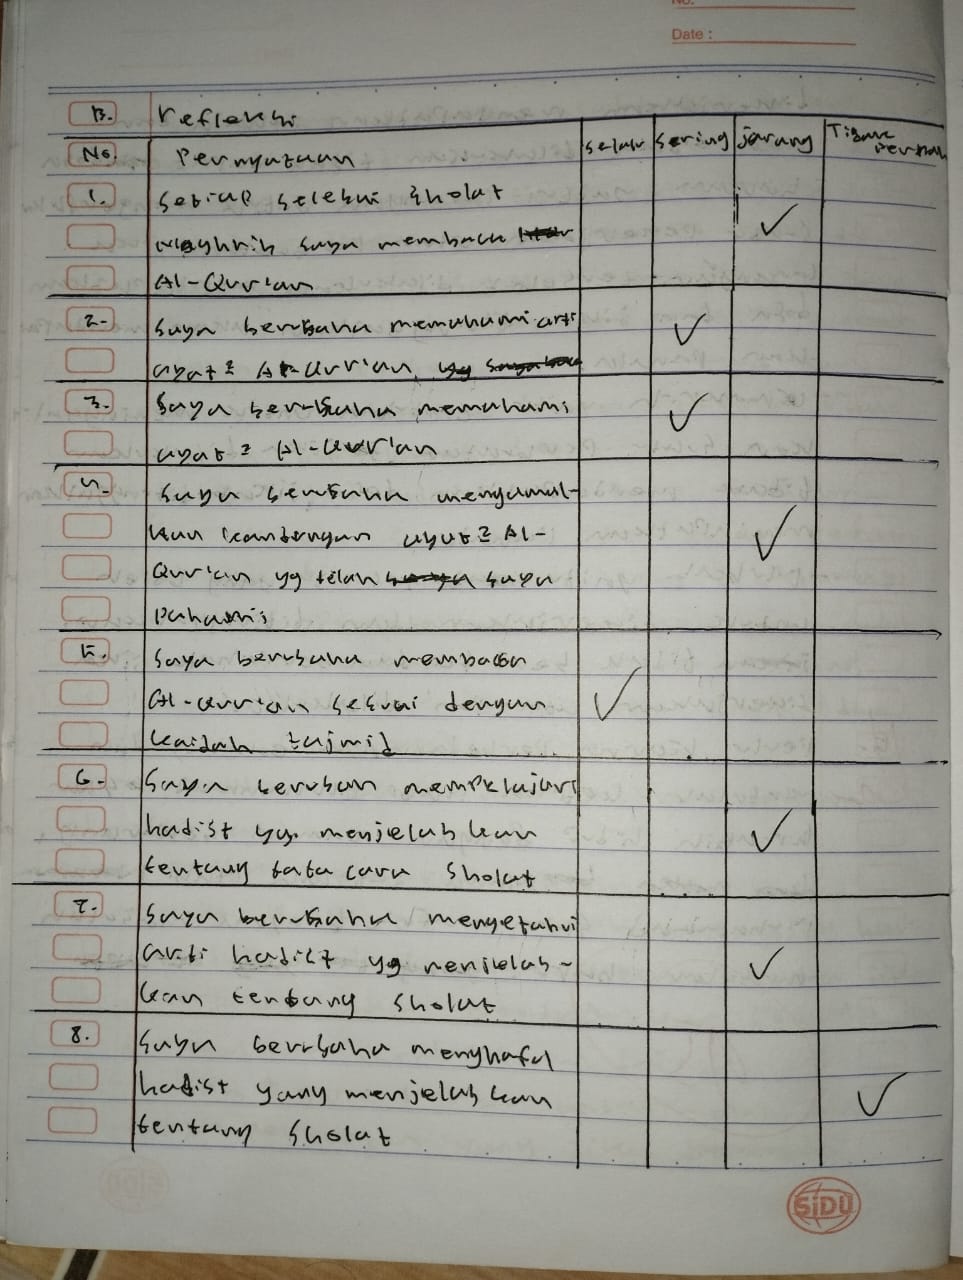 No.
Date :
B. refleksi
No. Pernyataan selalu sering jarang Tidak
Pernah
1. Setiap selesai sholat
Maghrib saya membaca
Al-Qur'an
✓
2. Saya berusaha memahami arti
ayat2 Al-Qur'an yg
✓
3. Saya berusaha memahami
ayat2 Al-Qur'an
✓
4. Saya berusaha mengamal-
kan kandungan ayat2 Al-
Qur'an yg telah saya
Pahami
✓
5. Saya berusaha membaca
Al-Qur'an sesuai dengan
kaidah tajwid
✓
6. Saya berusaha mempelajari
hadist yg. menjelaskan
tentang tata cara sholat
✓
7. Saya berusaha mengetahui
arti hadist yg menjelas-
kan tentang sholat
✓
8. Saya berusaha menghafal
hadist yang menjelaskan
tentang sholat
✓
SIDU
SIDU